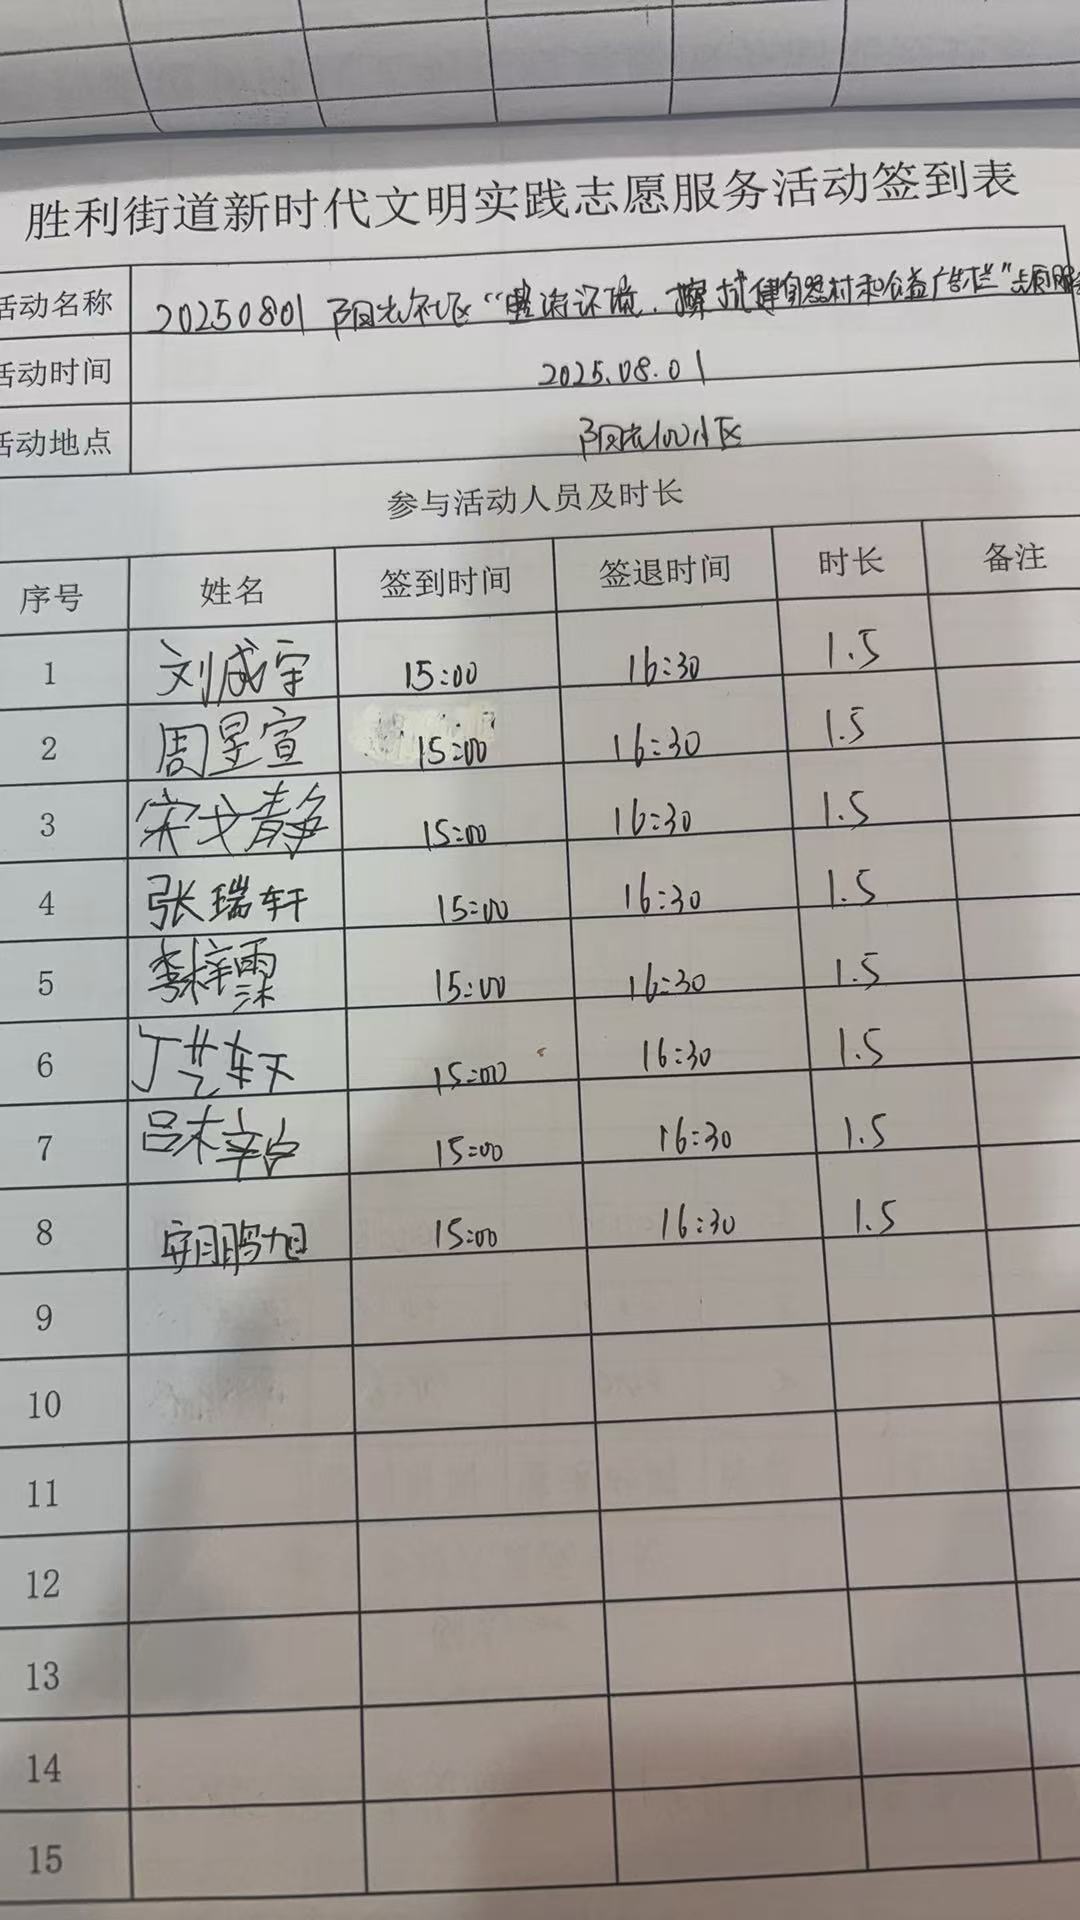 胜利街道新时代文明实践志愿服务活动签到表
活动名称 20250801 阳光社区“整洁环境.擦拭健身器材和公益广告栏”志愿服务
活动时间 2025.08.01
活动地点 阳光100小区
参与活动人员及时长
序号 姓名 签到时间 签退时间 时长 备注
1 刘咸宇 15:00 16:30 1.5
2 周昱宣 15:00 16:30 1.5
3 宋戈静 15:00 16:30 1.5
4 张瑞轩 15:00 16:30 1.5
5 李梓霂 15:00 16:30 1.5
6 丁艺轩 15:00 16:30 1.5
7 15:00 16:30 1.5
8 15:00 16:30 1.5
9
10
11
12
13
14
15